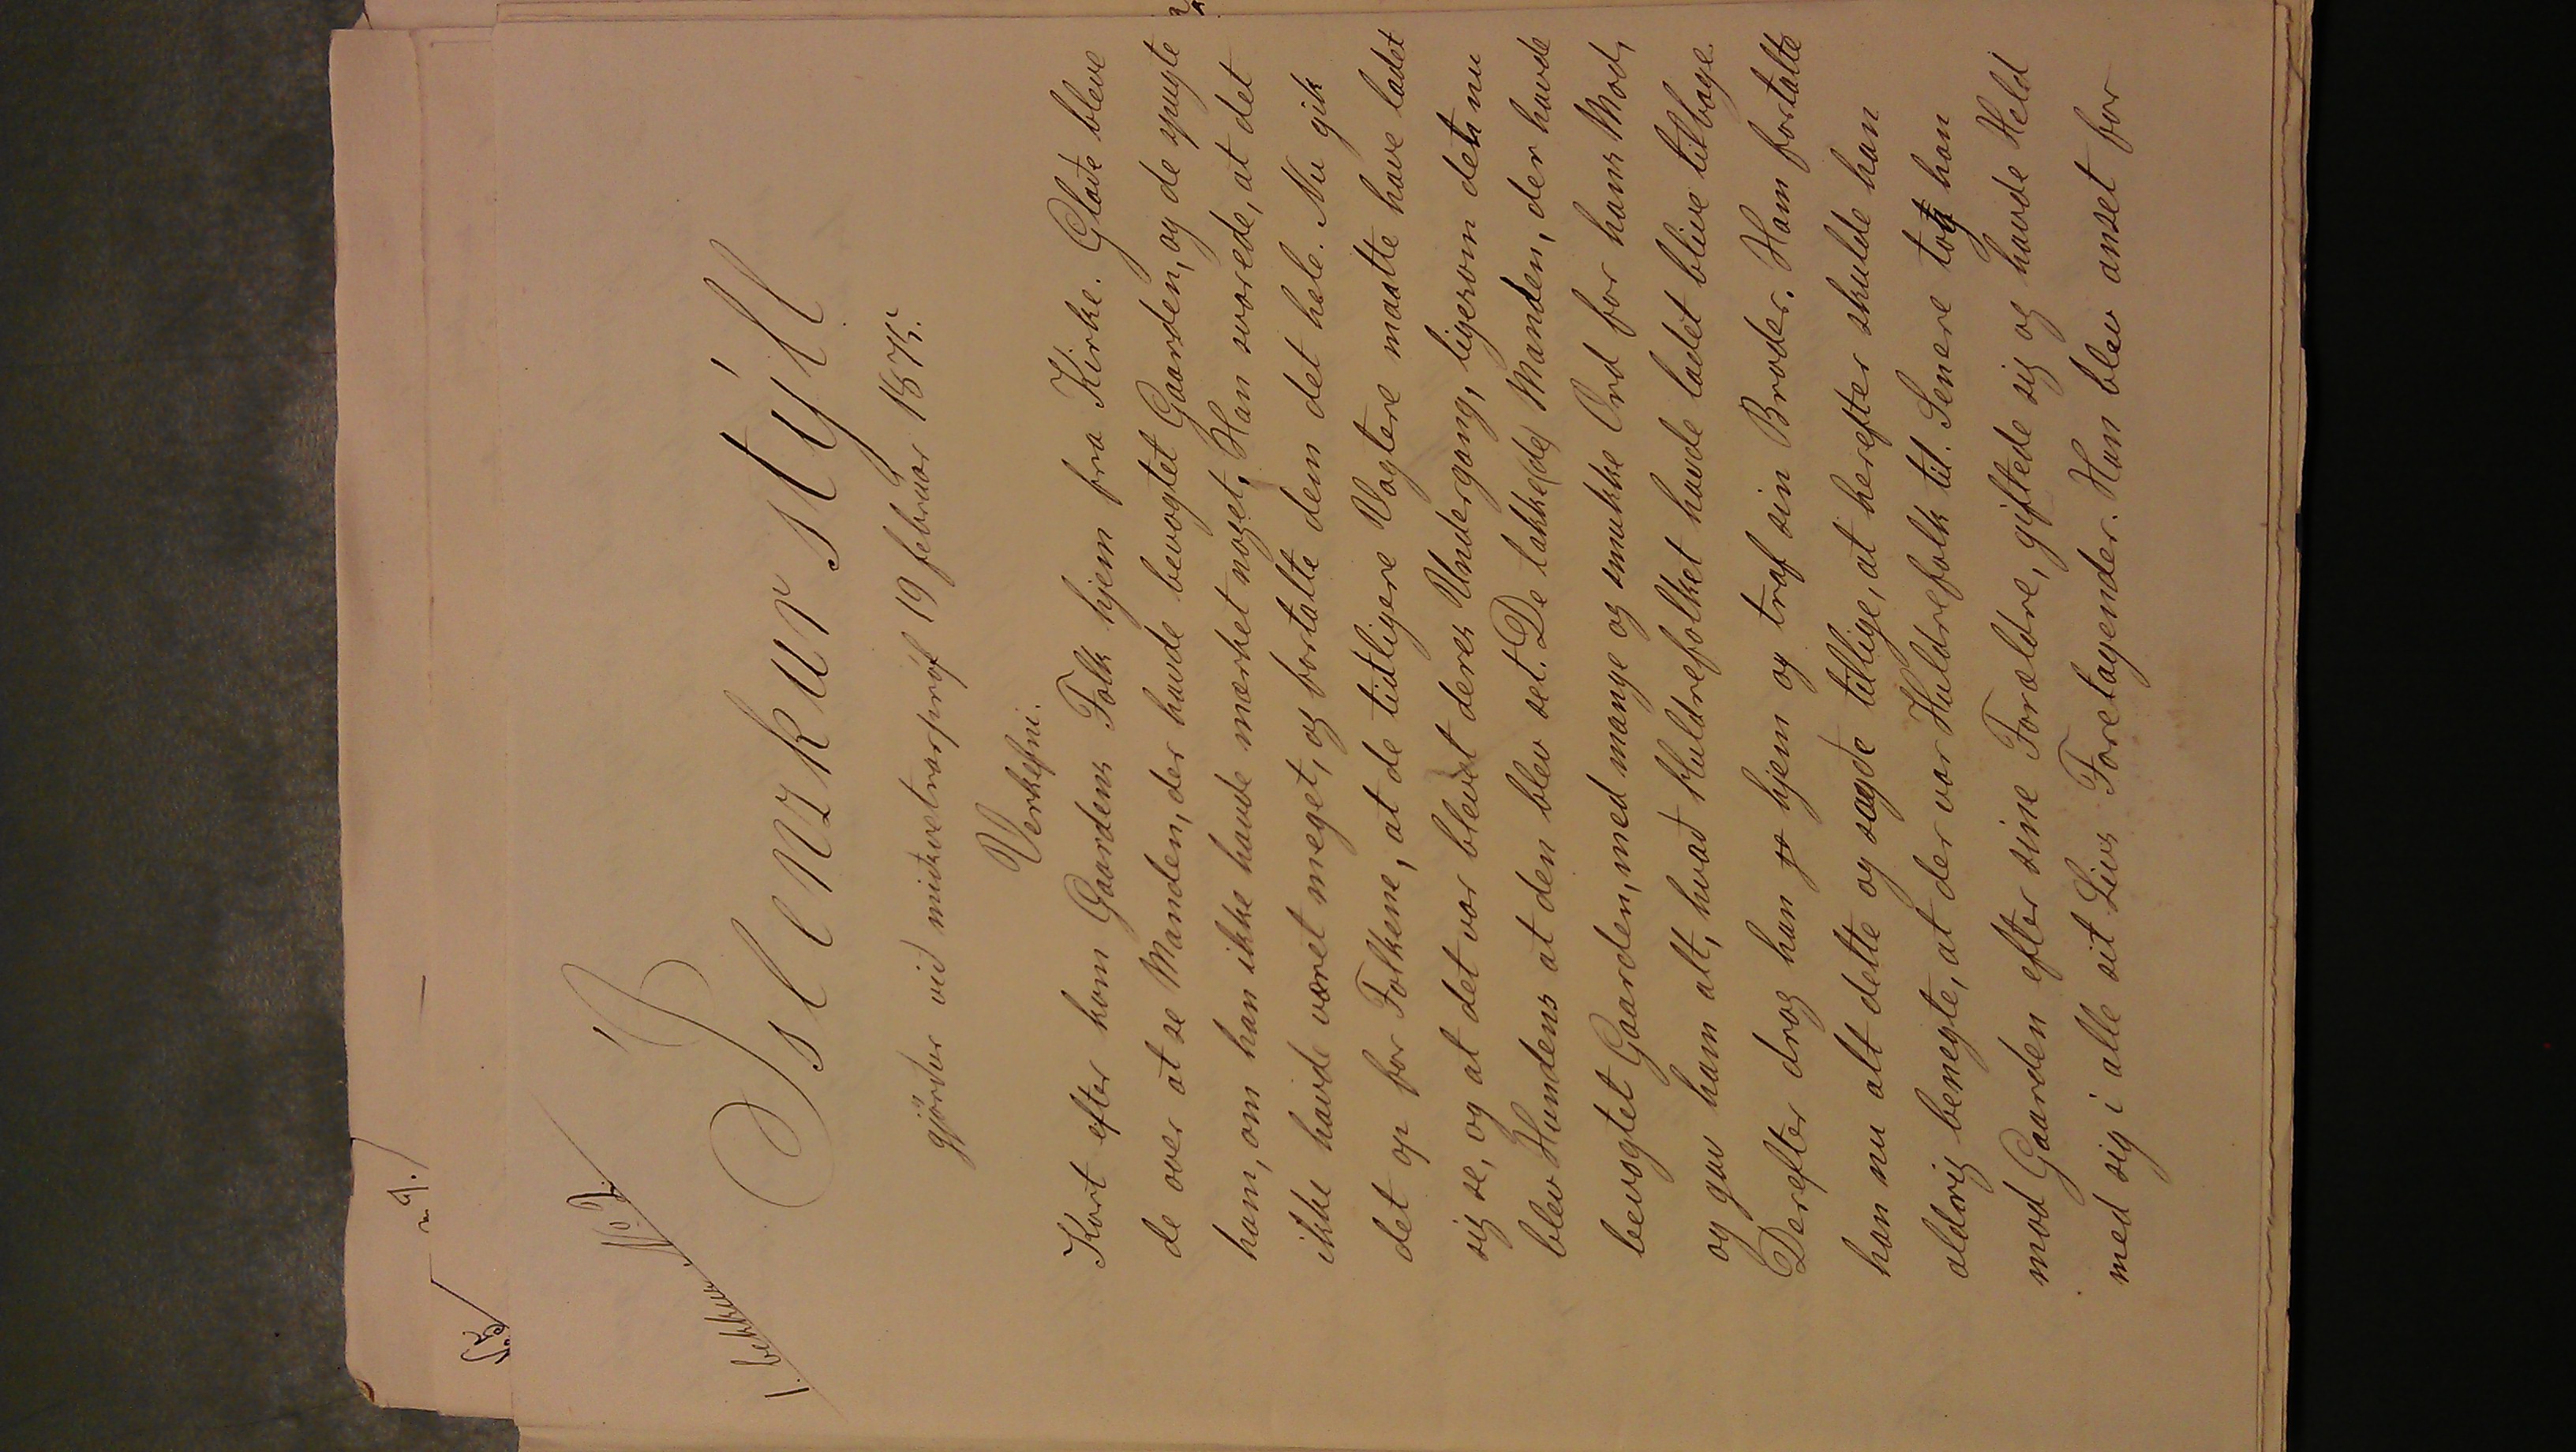 1. bekkur. No 2.
Íslenzkur stýll
gjörður við miðsvetrarpróf 19 februar 1875.
Verkefni.
Kort efter kom Gaardens Folk hjem fra Kirke. Glade bleve
de over at se Manden, der havde bevogtet Gaarden, og de spugte
ham, om han ikke havde mærket noget. Han svarede, at det
ikke havde været meget, og fortalte dem det hele. Nu gik
det op for Folkene, at de tidligere Vogtere maatte have ladet
sig se, og at det var blevet deres Undergang, ligesom det nu
blev Hundens at den blev set. De takke(de) Manden, der havde
bevogtet Gaarden, med mange og smukke Ord for hans Mod,
og gav ham alt, hvad Huldrefolket havde ladet blive tilbage.
Derefter drog han hjem og traf sin Broder. Ham fortalte
han nu alt dette og sagde tillige, at herefter skulde han
aldrig benegte, at der var Huldrefolk til. Senere tog han
mod Gaarden efter sine Forældre, giftede sig og havde Held
med sig i alle sit Livs Foretagender. Han blev anset for